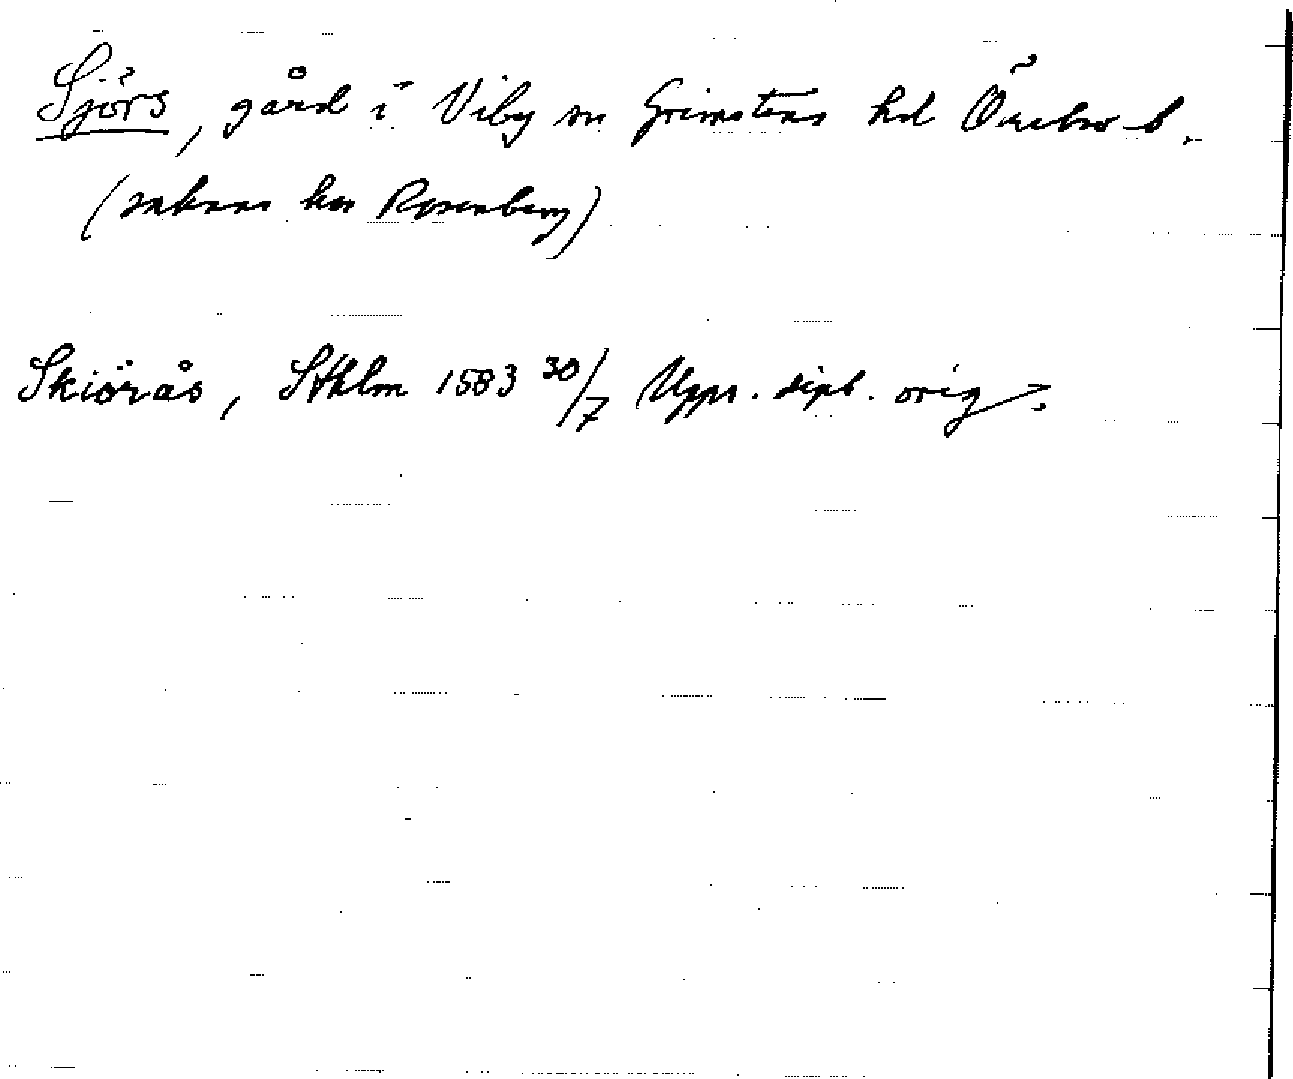 Sjörs, gård i Viby sn Grimstens hd Örebro l.
(saknas hos Rosenberg)
Skiörås, Sthlm 1583 30/7 Upps. dipl. orig.